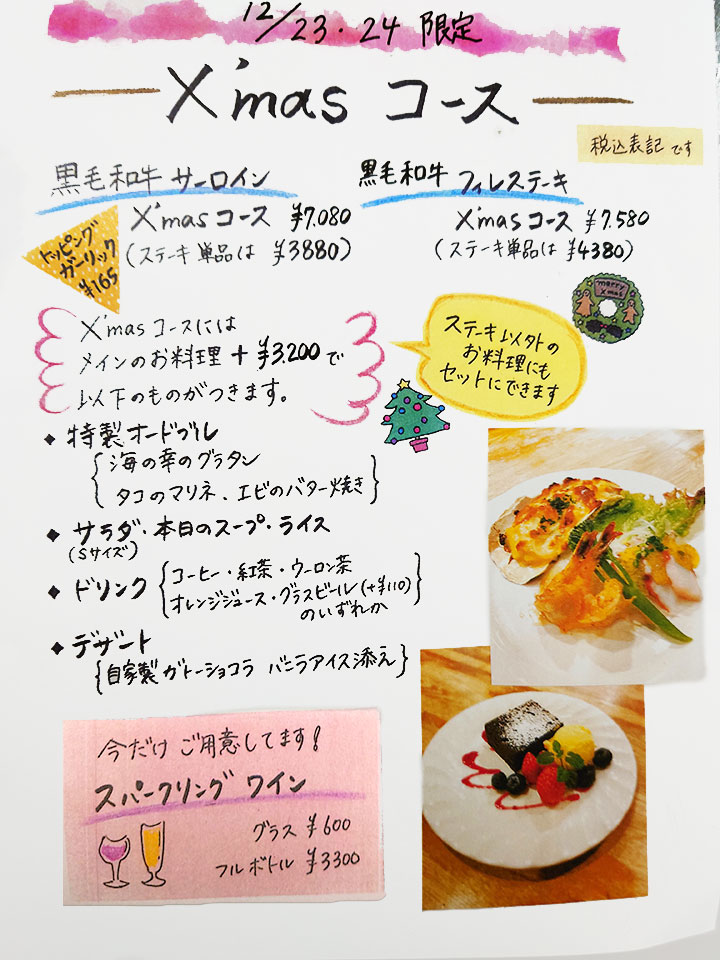 12/23・24 限定
X'mas コース
税込表記です
黒毛和牛 サーロイン
X'mas コース ¥7,080
(ステーキ単品は ¥3880)
トッピング
ガーリック
¥165
黒毛和牛 フィレステーキ
X'mas コース ¥7,580
(ステーキ単品は ¥4380)
merry
Xmas
X'mas コースには
メインのお料理 + ¥3,200で
以下のものがつきます。
ステーキ以外の
お料理にも
セットにできます
◆ 特製オードブル
{海の幸のグラタン
タコのマリネ、エビのバター焼き}
◆ サラダ・本日のスープ・ライス
(Sサイズ)
◆ ドリンク {コーヒー・紅茶・ウーロン茶
オレンジジュース・グラスビール(+¥110)
のいずれか}
◆ デザート
{自家製ガトーショコラ バニラアイス添え}
今だけ ご用意してます!
スパークリング ワイン
グラス ¥600
フルボトル ¥3300